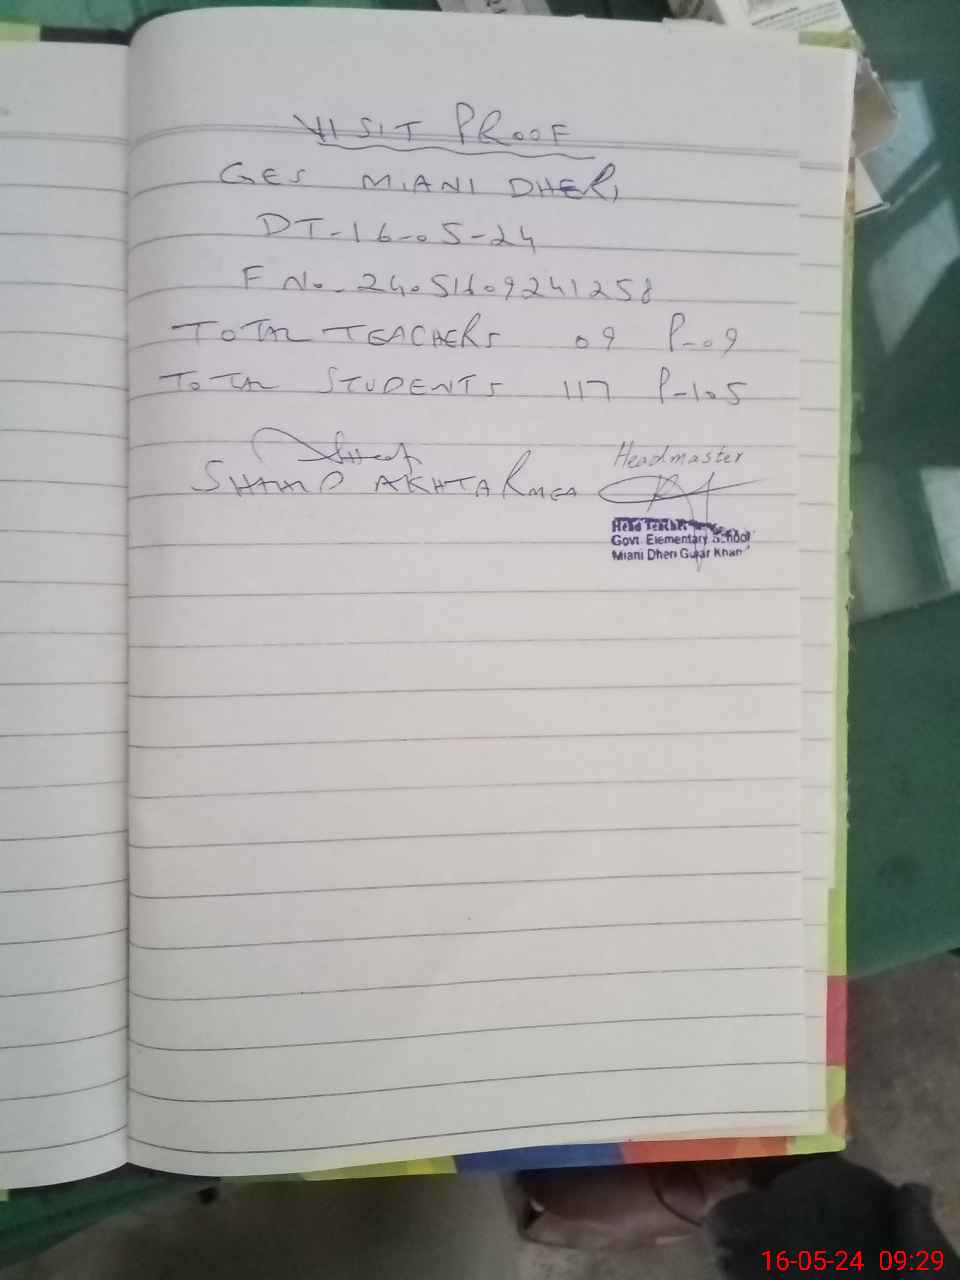 VISIT PROOF
GES MIANI DHERI
DT-16-05-24
F No. 24051609241258
TOTAL TEACHERS 09 P-09
TOTAL STUDENTS 117 P-105
Headmaster
SHAHID AKHTAR MEA
Head Teacher
Govt. Elementary School
Miani Dheri Gujar Khan
16-05-24 09:29